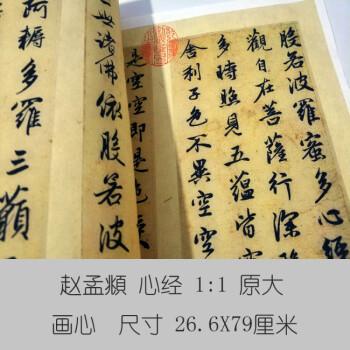 般若波羅蜜多心經
觀自在菩薩行深
多時照見五蘊皆空
舍利子色不異空空
是空空即是色
世諸佛依般若波
耨多羅三藐
赵孟頫 心经 1:1 原大
画心 尺寸 26.6X79厘米